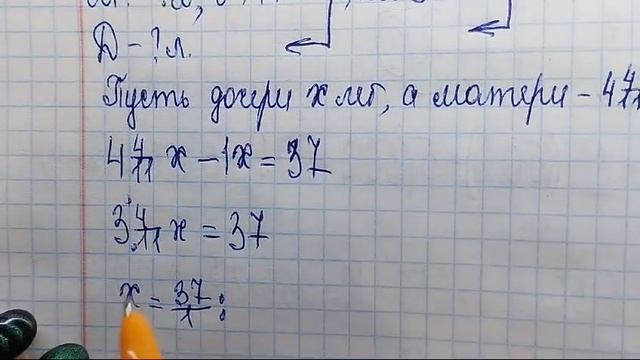 Д - ? л.
Пусть дочери x лет, а матери - 4 4/11
4 4/11 x - 1x = 37
3 4/11 x = 37
x = 37/1 :